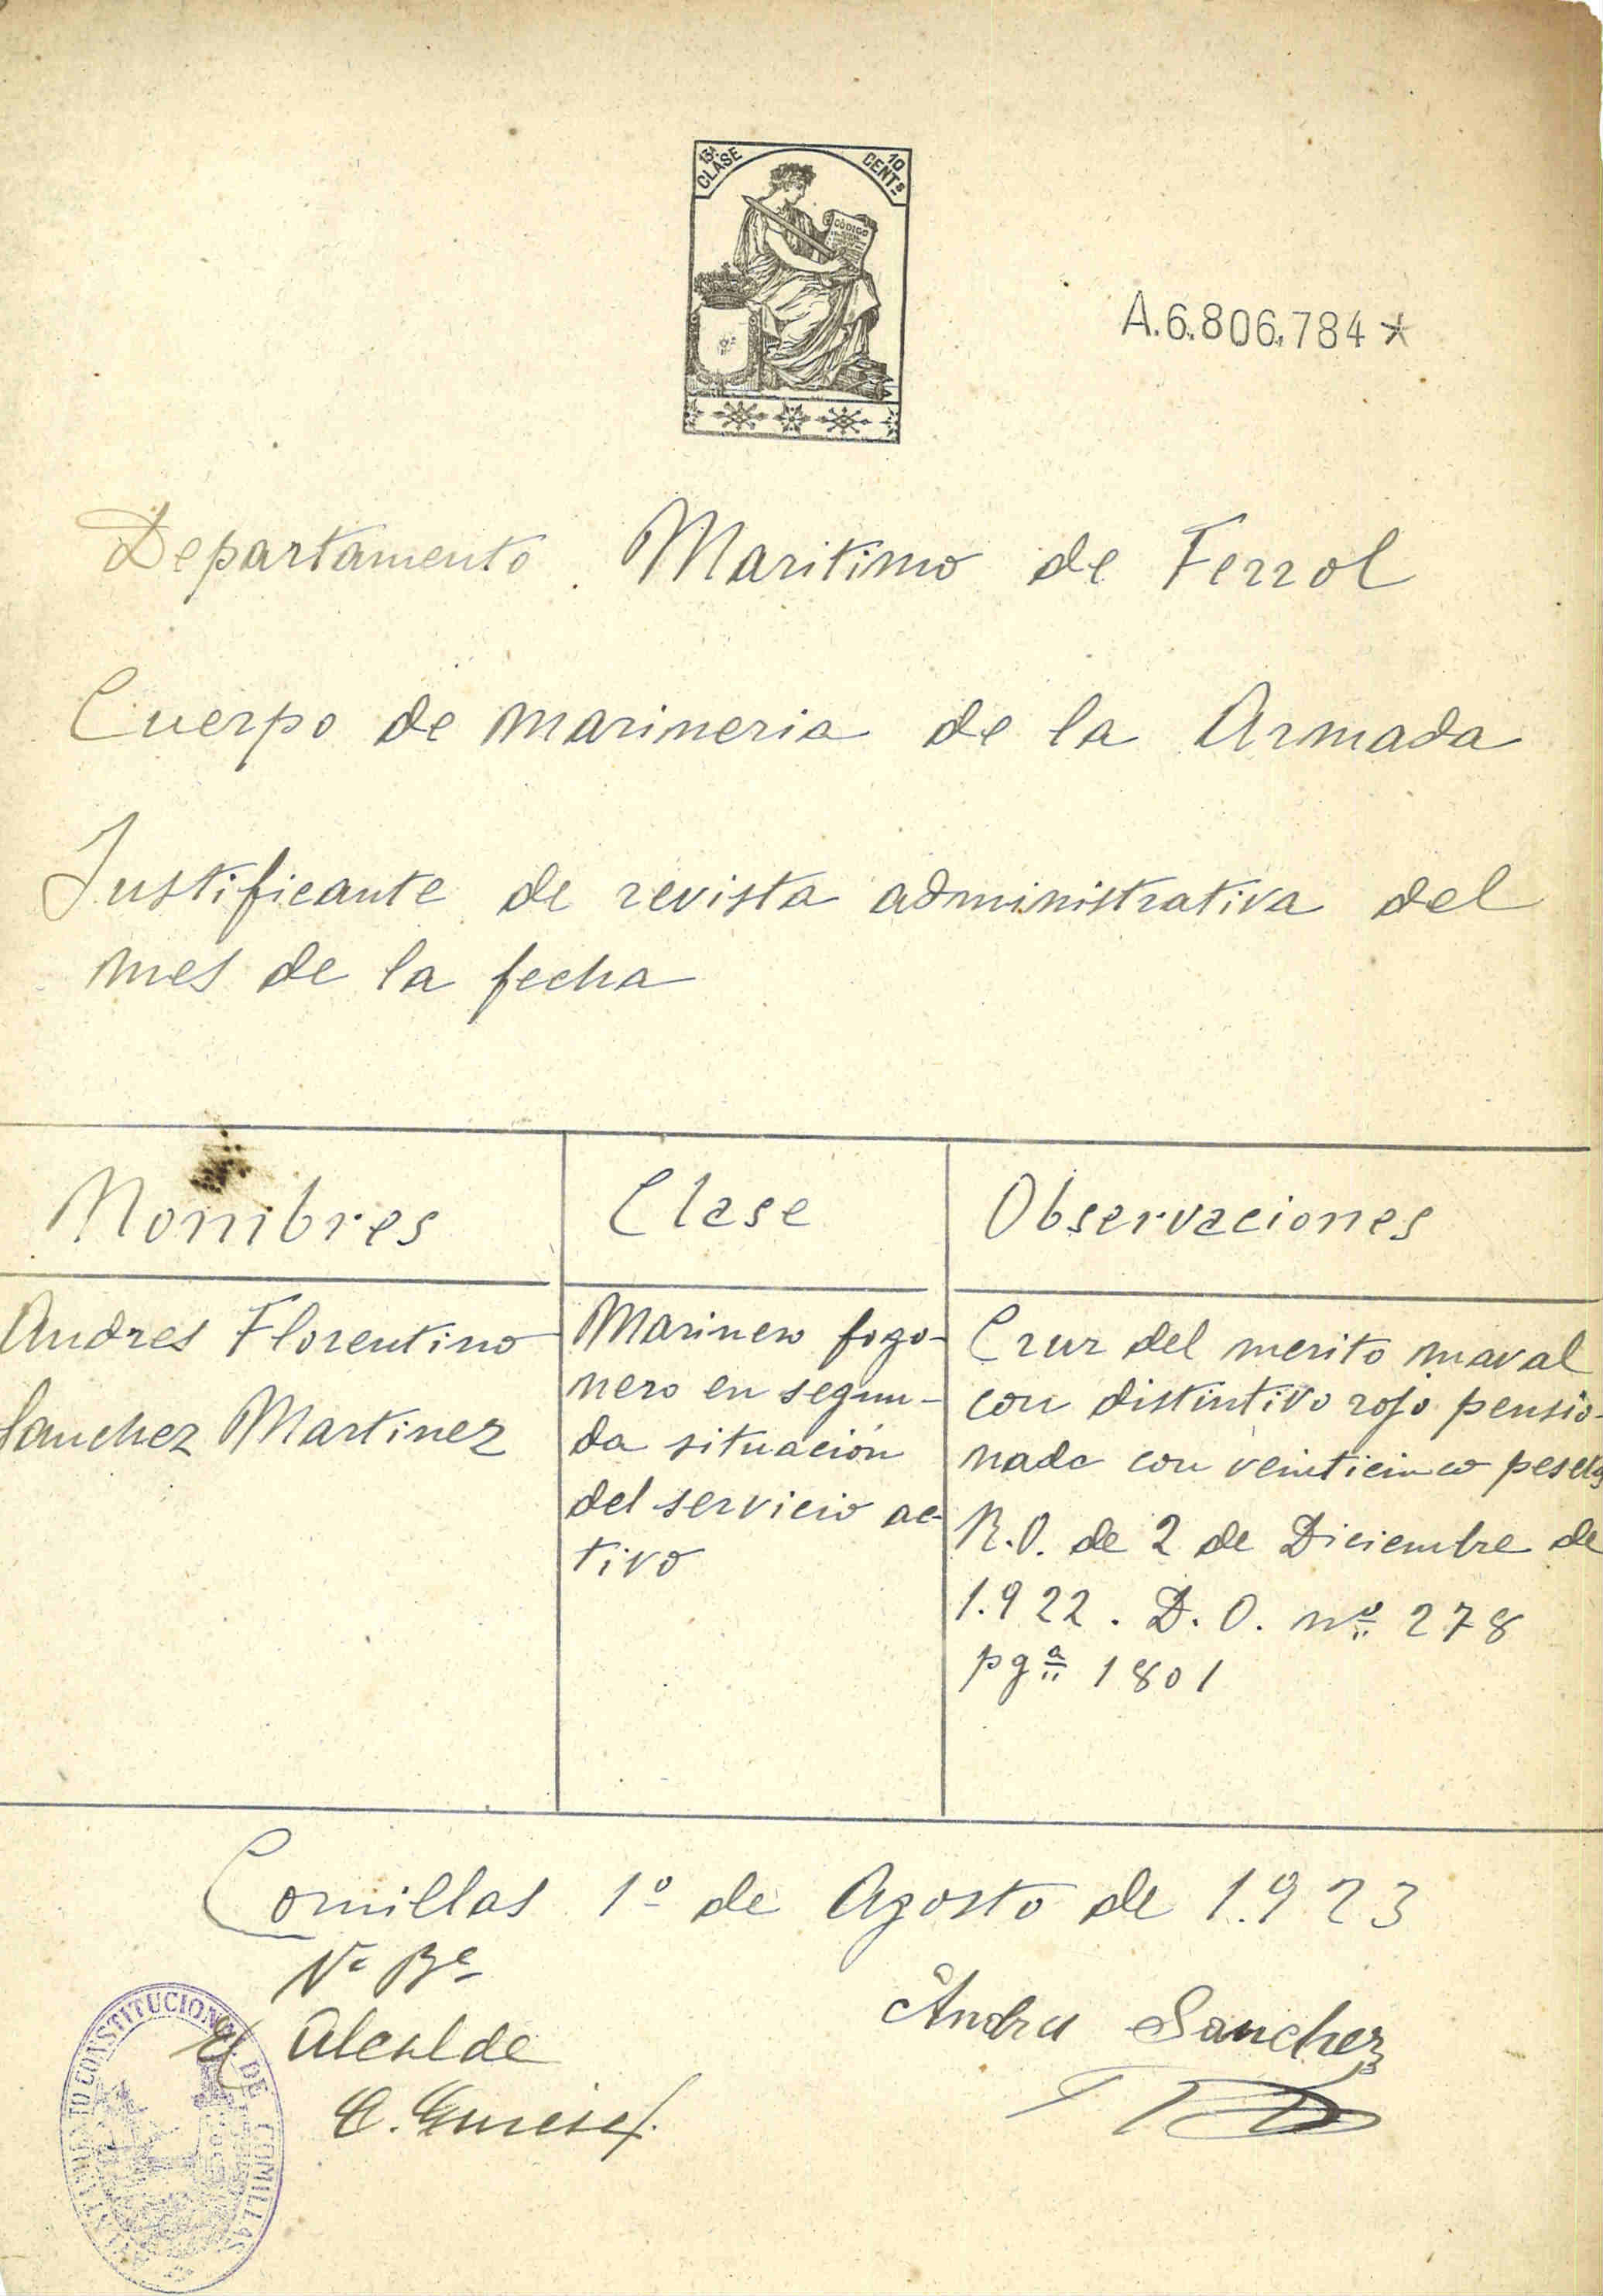 13ª CLASE
10 CENTS
CODIGO
A.6.806.784*
Departamento Maritimo de Ferrol
Cuerpo de marineria de la Armada
Justificante de revista administrativa del
mes de la fecha
Nombres
Clase
Observaciones
Andres Florentino
Sanchez Martinez
Marinero fogo-
nero en segun-
da situación
del servicio ac-
tivo
Cruz del merito naval
con distintivo rojo pensio-
nada con veinticinco pesetas
R.O. de 2 de Diciembre de
1.922. D.O. nº 278
pgª 1801
Comillas 1º de Agosto de 1.923
Vº Bº
El Alcalde
Andres Sanchez
AYUNTAMIENTO CONSTITUCIONAL DE COMILLAS